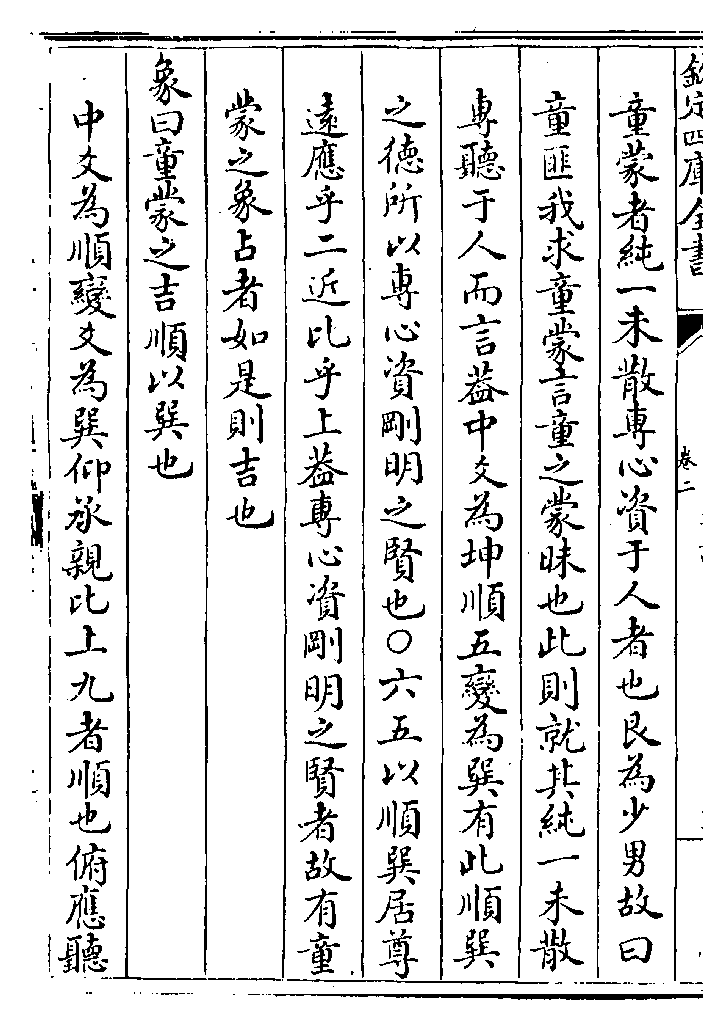 欽定四庫全書
卷二
童蒙者純一未散專心資于人者也艮為少男故曰
童匪我求童蒙言童之蒙昧也此則就其純一未散
專聽于人而言葢中爻為坤順五變為巽有此順巽
之德所以專心資剛明之賢也〇六五以順巽居尊
遠應乎二近比乎上葢專心資剛明之賢者故有童
蒙之象占者如是則吉也
象曰童蒙之吉順以巽也
中爻為順變爻為巽仰承親比上九者順也俯應聽